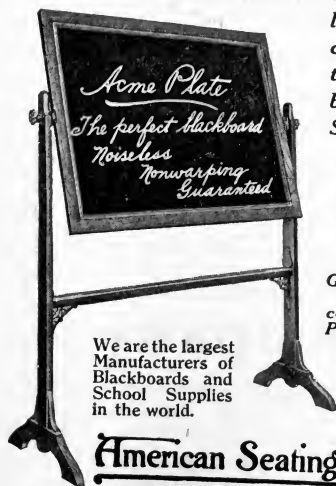 Acme Plate
The perfect blackboard
Noiseless
Nonwarping
Guaranteed
We are the largest
Manufacturers of
Blackboards and
School Supplies
in the world.
American Seating